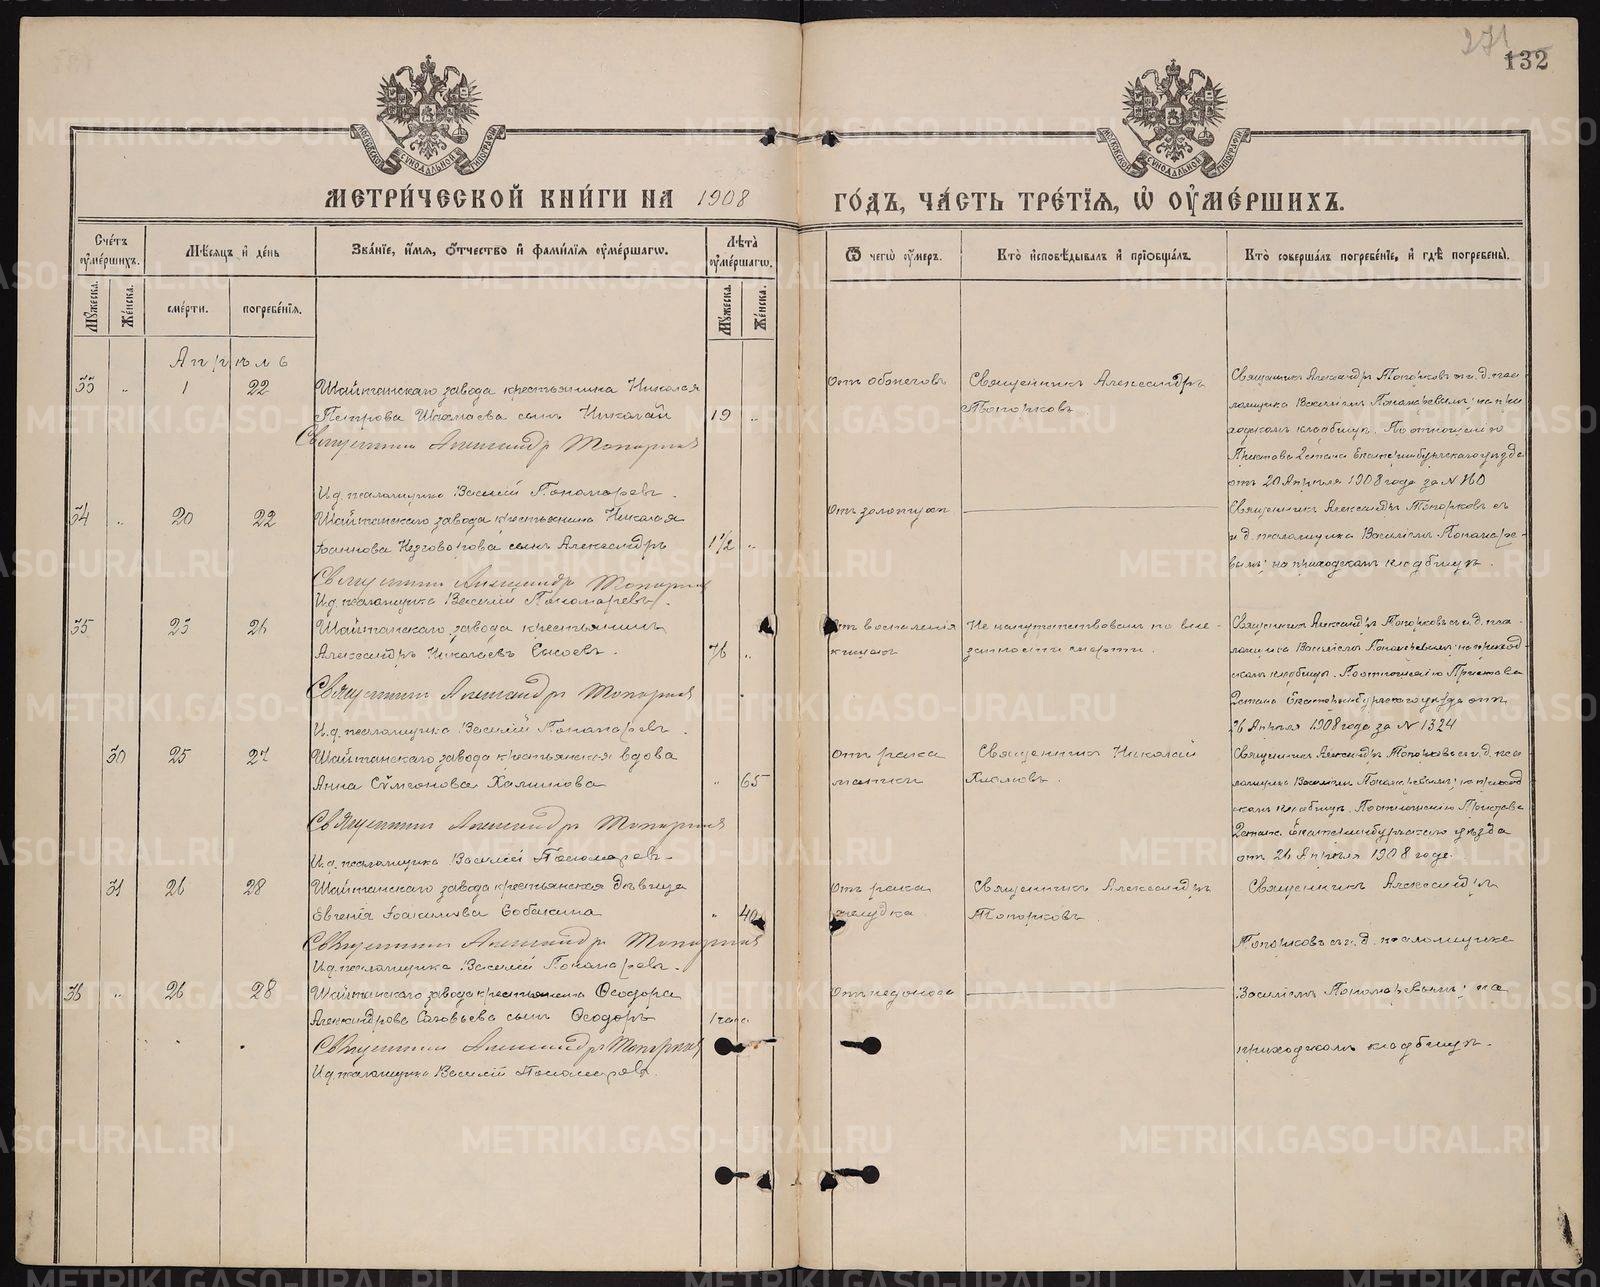 271
132
МОСКОВСКОЙ СѴНОДАЛЬНОЙ ТИПОГРАФІИ
МОСКОВСКОЙ СѴНОДАЛЬНОЙ ТИПОГРАФІИ
МЕТРИ́ЧЕСКОЙ КНИ́ГИ НА 1908
ГО́ДЪ, ЧА́СТЬ ТРЕ́ТІЯ, Ѡ ОУМЕ́РШИХЪ.
Сче́тъ оуме́ршихъ.
Мѣ́сяцъ и де́нь
Зва́ніе, и́мя, ѻ́тчество и фами́лія оуме́ршагѡ.
Лѣ́та оуме́ршагѡ.
Ѿ чегѡ̀ оу́меръ.
Кто̀ исповѣ́дывалъ и пріобща́лъ.
Кто̀ соверша́лъ погребе́ніе, и гдѣ̀ погребены̀.
Му́жеска.
Же́нска.
сме́рти.
погребе́нія.
Му́жеска.
Же́нска.
Апрѣль
33 „ 1 22
Шайтанскаго завода крестьянина Николая
Петрова сынъ Николай 19 „
Священникъ Александръ Топорковъ
И.д. псаломщика Василій Пономаревъ.
От ожоговъ
Священникъ Александръ
Топорковъ
Священникъ Александръ Топорковъ съ и.д. пса-
ломщика Василіемъ Пономаревымъ; на при-
ходскомъ кладбищѣ. По отношенію
Пристава 2 стана Екатеринбургскаго уѣзда
отъ 20 Апрѣля 1908 года за №
34 „ 20 22
Шайтанскаго завода крестьянина Николая
Іоаннова сынъ Александръ 1 1/2 „
Священникъ Александръ Топорковъ
И.д. псаломщика Василій Пономаревъ.
Отъ золотухи
Священникъ Александръ Топорковъ съ
и.д. псаломщика Василіемъ Пономаре-
вымъ; на приходскомъ кладбищѣ.
35 23 26
Шайтанскаго завода крестьянинъ
Александръ Николаевъ Сысоевъ. 76 „
Священникъ Александръ Топорковъ
И.д. псаломщика Василій Пономаревъ.
От воспаленія
кишекъ
Не напутствованъ по вне-
запности смерти.
Священникъ Александръ Топорковъ съ и.д. пса-
ломщика Василіемъ Пономаревымъ; на приход-
скомъ кладбищѣ. По отношенію Пристава
2 стана Екатеринбургскаго уѣзда отъ
26 Апрѣля 1908 года за № 1324
30 25 27
Шайтанскаго завода крестьянская вдова
Анна Сѵмеонова Халинова „ 65
Священникъ Александръ Топорковъ
И.д. псаломщика Василій Пономаревъ.
Отъ рака
матки
Священникъ Николай
Хлоповъ.
Священникъ Александръ Топорковъ съ и.д. пса-
ломщика Василіемъ Пономаревымъ; на приход-
скомъ кладбищѣ. По отношенію Пристава
2 стана Екатеринбургскаго уѣзда
отъ 26 Апрѣля 1908 года.
31 26 28
Шайтанскаго завода крестьянская дѣвица
Евгенія Собакина „ 40
Священникъ Александръ Топорковъ
И.д. псаломщика Василій Пономаревъ.
От рака
желудка
Священникъ Александръ
Топорковъ.
Священникъ Александръ
Топорковъ съ и.д. псаломщика
36 „ 26 28
Шайтанскаго завода крестьянина Ѳеодора
Александрова Соловьева сынъ Ѳеодоръ 1 часъ
Священникъ Александръ Топорковъ
И.д. псаломщика Василій Пономаревъ.
Отъ недоноса
Василіемъ Пономаревымъ; на
приходскомъ кладбищѣ.
METRIKI.GASO-URAL.RU